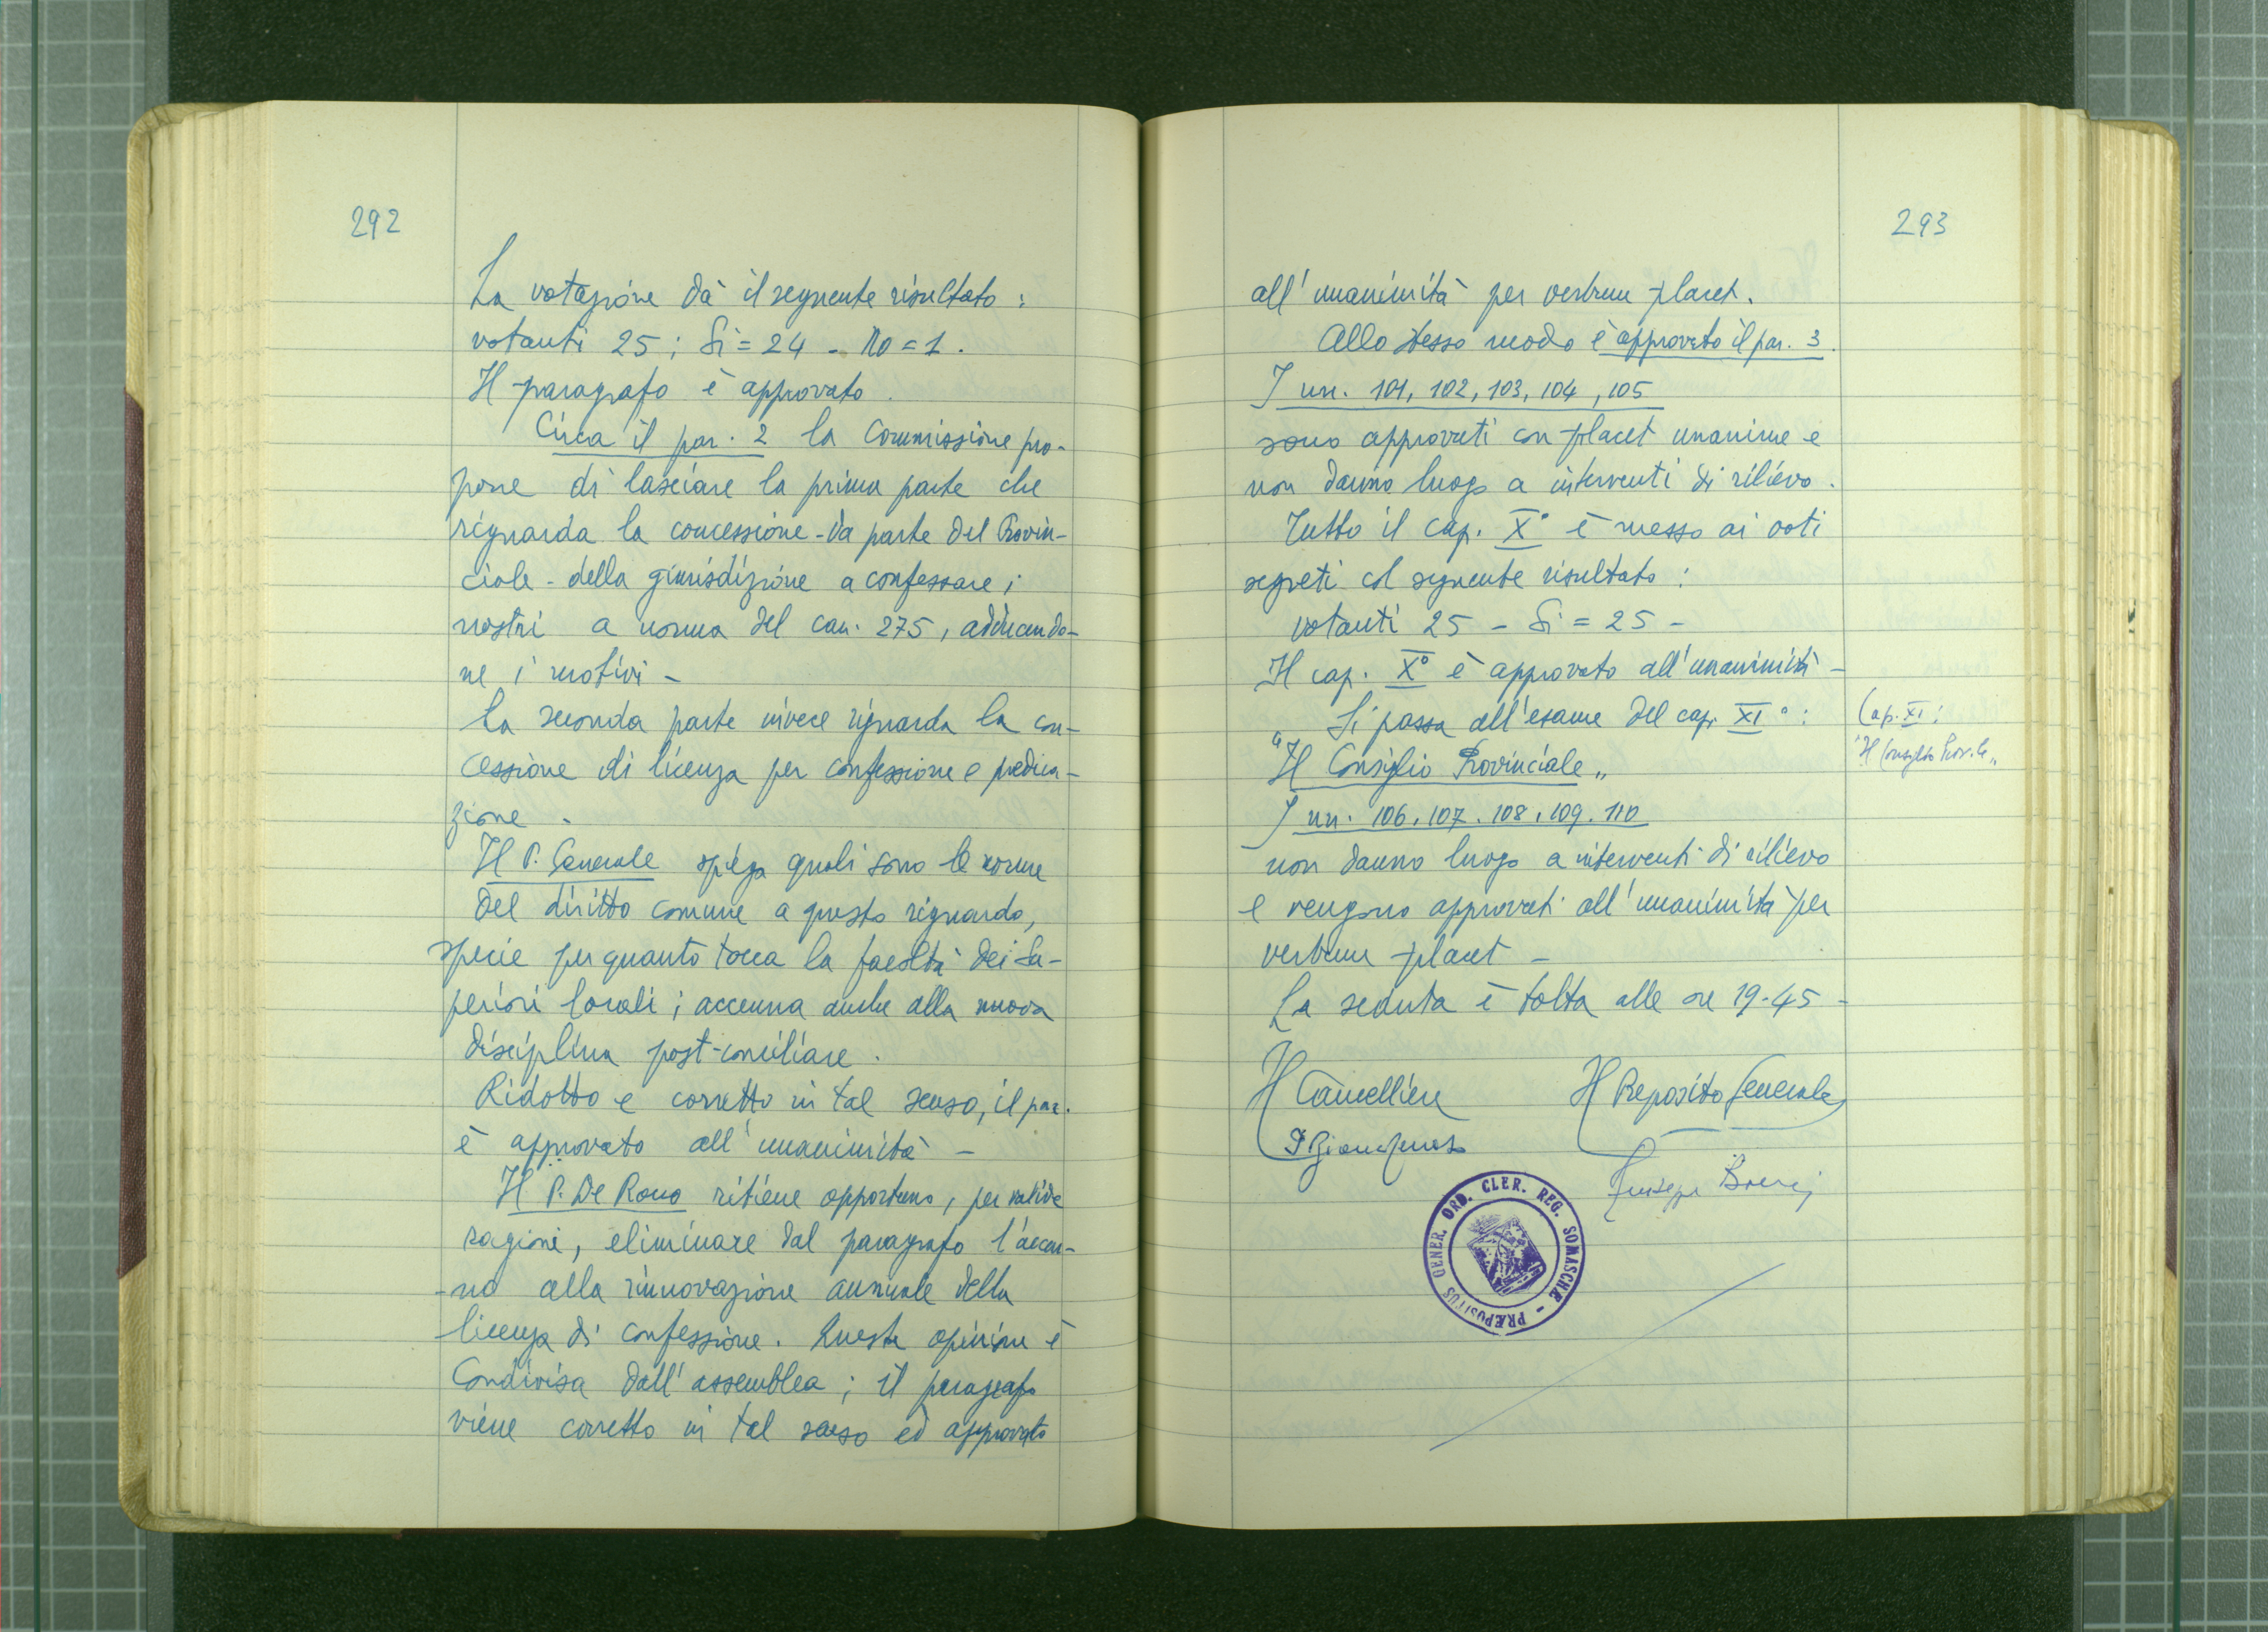 292
La votazione dà il seguente risultato:
votanti 25; Si = 24 - No = 1.
Il paragrafo è approvato.
Circa il par. 2 la Commissione pro-
pone di lasciare la prima parte che
riguarda la concessione - da parte del Provin-
ciale - della giurisdizione a confessare i
nostri a norma del can. 275, adducendo-
ne i motivi -
La seconda parte invece riguarda la con-
cessione di licenza per confessione e predica-
zione.
Il P. Generale spiega quali sono le norme
del diritto comune a questo riguardo,
specie per quanto tocca la facoltà dei Su-
periori locali; accenna anche alla nuova
disciplina post-conciliare.
Ridotto e corretto in tal senso, il par.
è approvato all'unanimità -
Il P. De Rocco ritiene opportuno, per valide
ragioni, eliminare dal paragrafo l'accen-
-no alla rinnovazione annuale della
licenza di confessione. Questa opinione è
condivisa dall'assemblea; il paragrafo
viene corretto in tal senso ed approvato
293
all'unanimità per verbum placet.
Allo stesso modo è approvato il par. 3.
I nn. 101, 102, 103, 104, 105
sono approvati con placet unanime e
non danno luogo a interventi di rilievo.
Tutto il cap. X° è messo ai voti
segreti col seguente risultato:
votanti 25 - Si = 25 -
Il cap. X° è approvato all'unanimità -
Si passa all'esame del cap. XI°:
"Il Consiglio Provinciale"
Cap. XI:
"Il Consiglio Prov.le"
I nn. 106, 107, 108, 109, 110
non danno luogo a interventi di rilievo
e vengono approvati all'unanimità per
verbum placet -
La seduta è tolta alle ore 19.45 -
Il Cancelliere
Il Preposito Generale
Giuseppe
PRÆPOSITUS GENER. ORD. CLER. REG. SOMASCHÆ